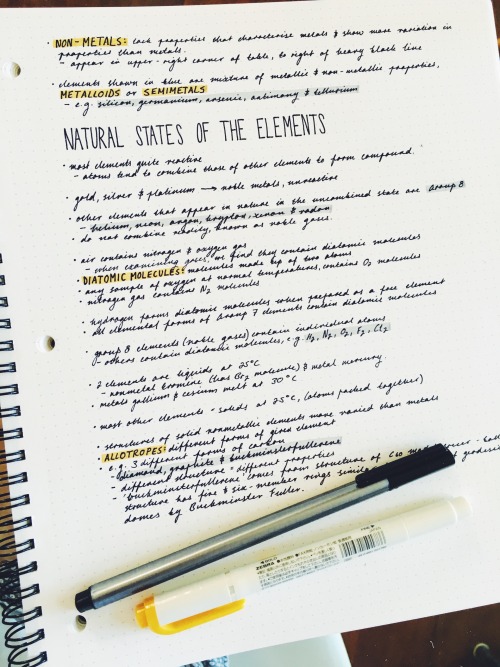 • NON-METALS: lack properties that characterise metals & show more variation in
properties than metals.
- appear in upper-right corner of table, to right of heavy black line
• elements shown in blue are mixture of metallic & non-metallic properties,
METALLOIDS or SEMIMETALS
- e.g. silicon, germanium, arsenic, antimony & tellurium
NATURAL STATES OF THE ELEMENTS
• most elements quite reactive
- atoms tend to combine those of other elements to form compound.
• gold, silver & platinum → noble metals, unreactive
• other elements that appear in nature in the uncombined state are Group 8
- helium, neon, argon, krypton, xenon & radon
• do not combine readily, known as noble gases.
• air contains nitrogen & oxygen gas
- when examining gases, we find they contain diatomic molecules
DIATOMIC MOLECULES: molecules made up of two atoms
• any sample of oxygen at normal temperatures, contains O2 molecules
• nitrogen gas contains N2 molecules
• hydrogen forms diatomic molecules when prepared as a free element
• all elemental forms of Group 7 elements contain diatomic molecules
• group 8 elements (noble gases) contain individual atoms
- others contain diatomic molecules, e.g. H2, N2, O2, F2, Cl2
• 2 elements are liquids at 25°C
- nonmetal bromine (has Br2 molecule) & metal mercury.
• metals gallium & cesium melt at 30°C
• most other elements - solids at 25°C, (atoms packed together)
• structures of solid nonmetallic elements more varied than metals
ALLOTROPES: different forms of given element
• e.g. 3 different forms of carbon
- diamond, graphite & buckminsterfullerene
- different structure = different properties
- 'buckminsterfullerene' comes from structure of C60
structure has five & six-member rings
domes by Buckminster Fuller.
ZEBRA